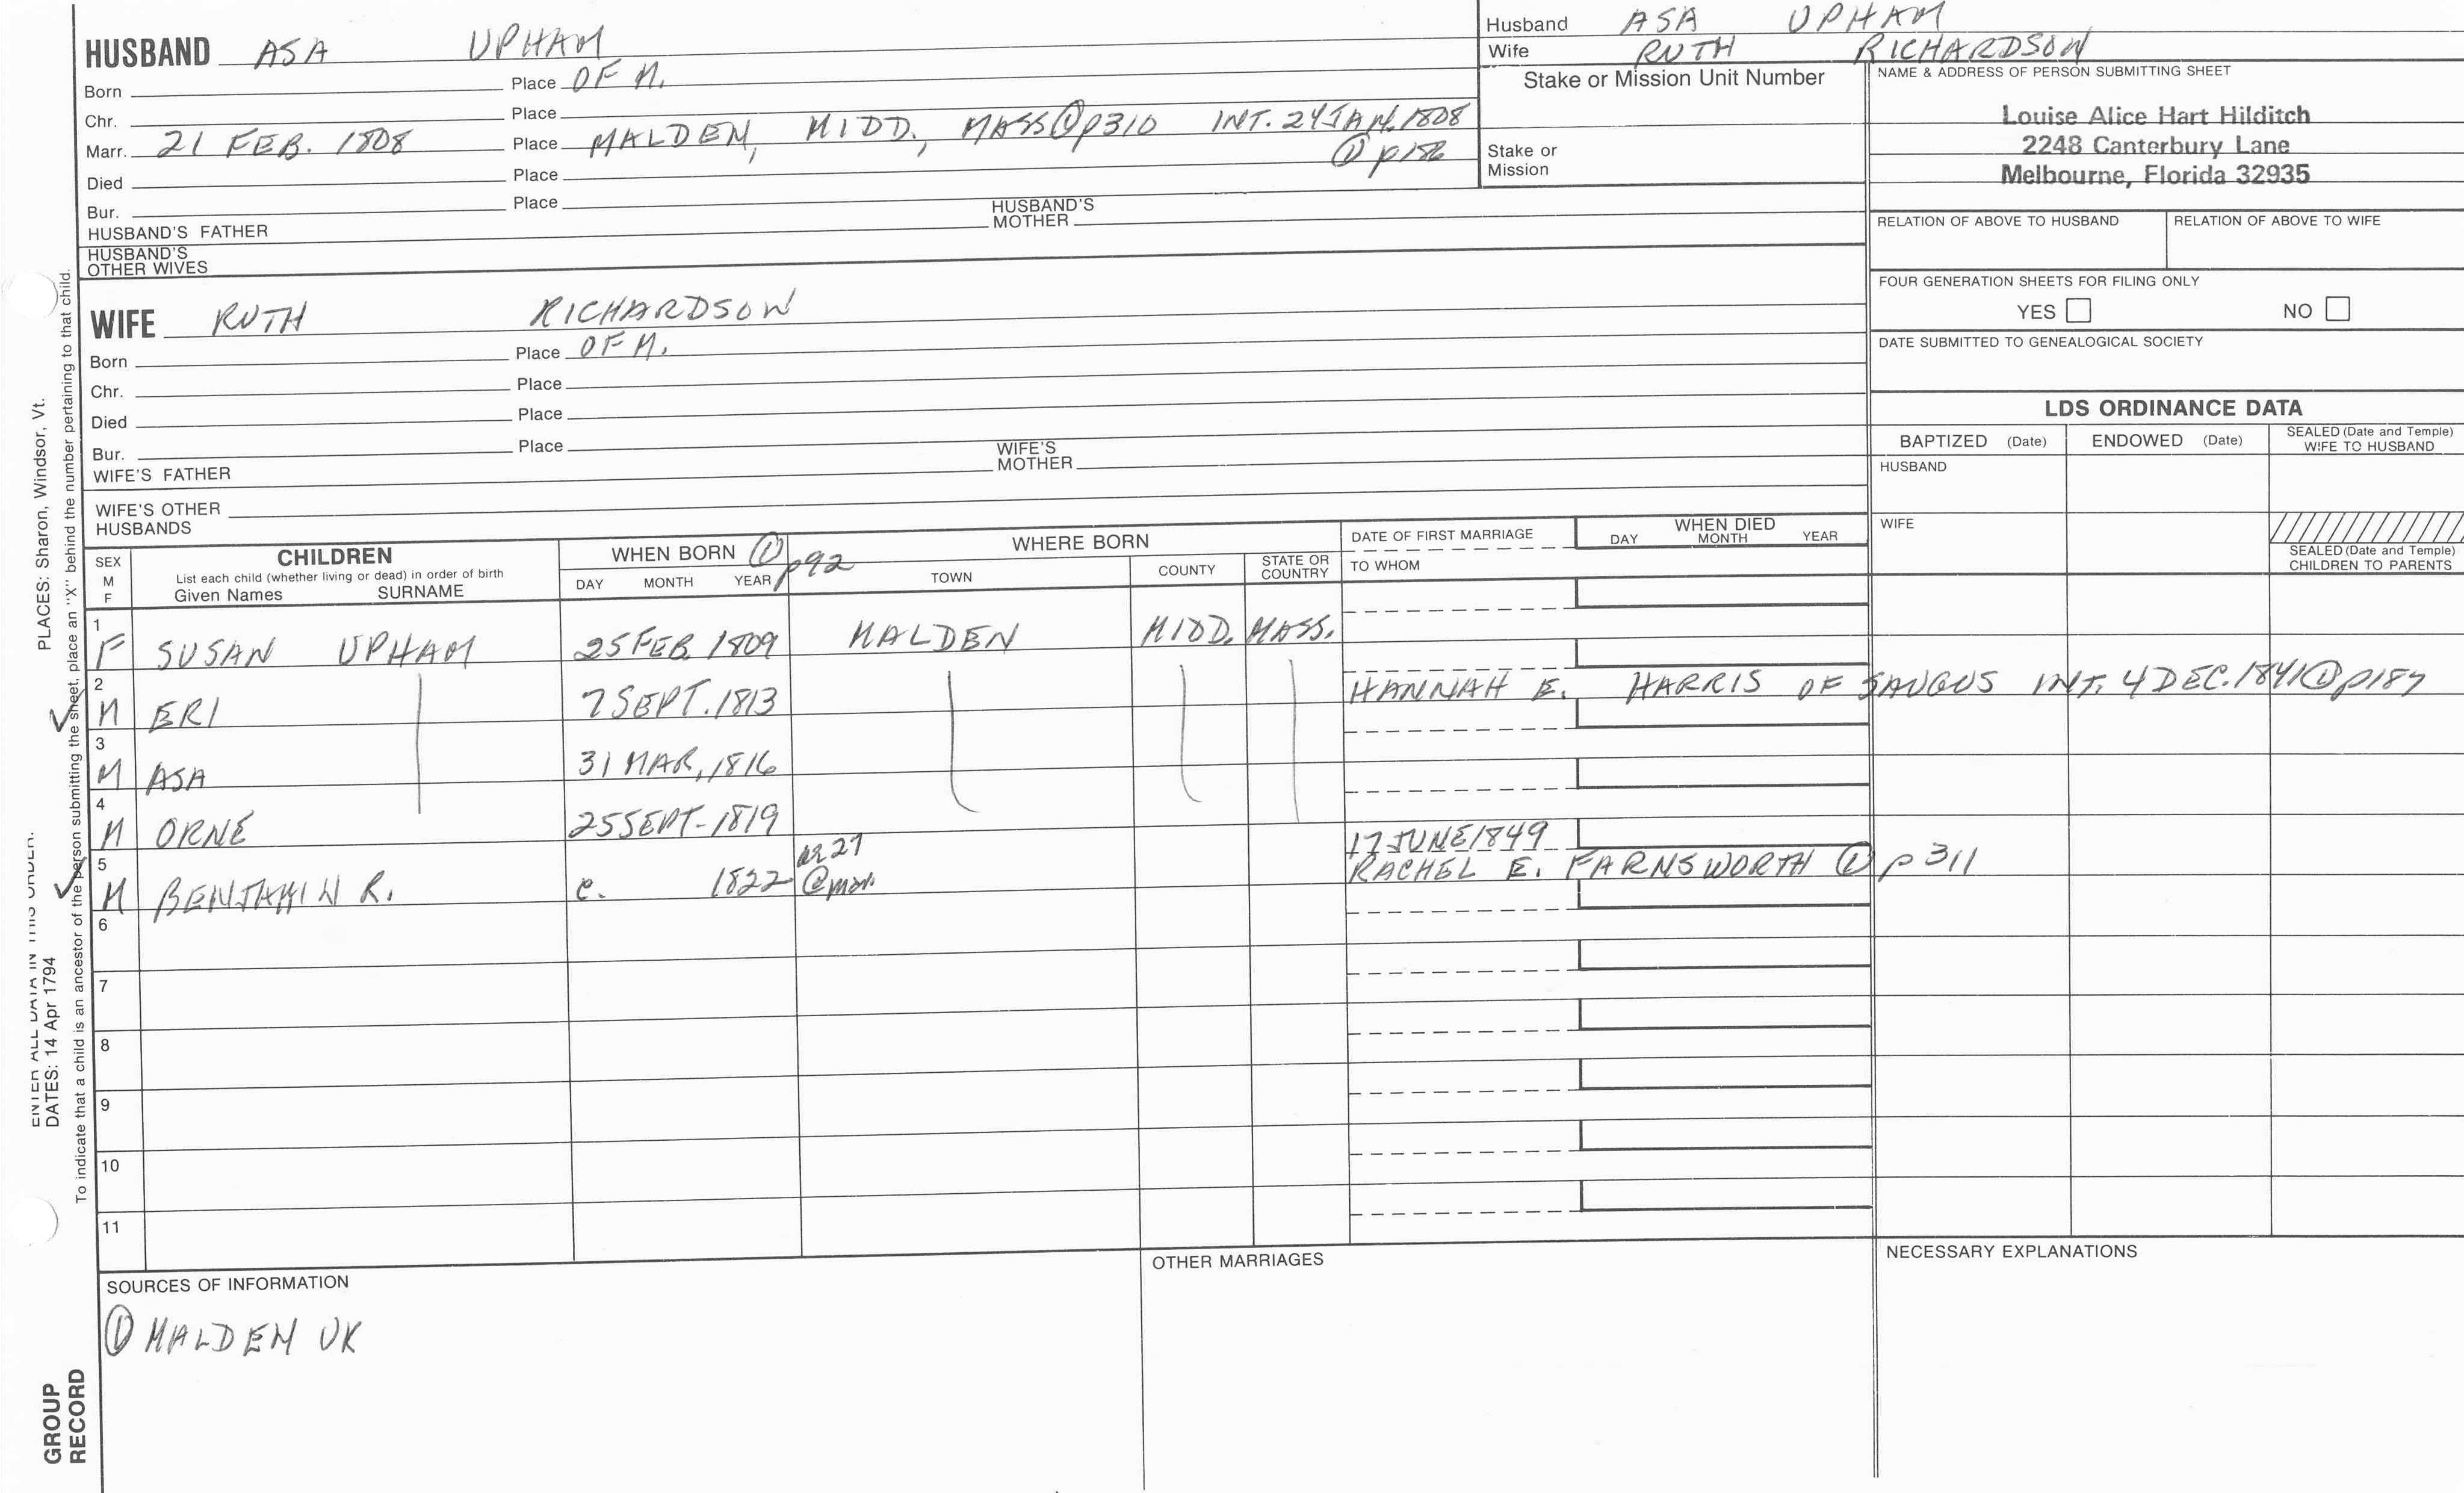 HUSBAND ASA UPHAM
Born Place OF M.
Chr. Place
Marr. 21 FEB. 1808 Place MALDEN, MIDD., MASS ① p310 INT. 24 JAN. 1808
① p186
Died Place
Bur. Place
HUSBAND'S FATHER HUSBAND'S MOTHER
HUSBAND'S OTHER WIVES
Husband ASA UPHAM
Wife RUTH RICHARDSON
Stake or Mission Unit Number
Stake or Mission
NAME & ADDRESS OF PERSON SUBMITTING SHEET
Louise Alice Hart Hilditch
2248 Canterbury Lane
Melbourne, Florida 32935
RELATION OF ABOVE TO HUSBAND RELATION OF ABOVE TO WIFE
FOUR GENERATION SHEETS FOR FILING ONLY
YES NO
DATE SUBMITTED TO GENEALOGICAL SOCIETY
WIFE RUTH RICHARDSON
Born Place OF M.
Chr. Place
Died Place
Bur. Place
WIFE'S FATHER WIFE'S MOTHER
WIFE'S OTHER HUSBANDS
LDS ORDINANCE DATA
BAPTIZED (Date) ENDOWED (Date) SEALED (Date and Temple) WIFE TO HUSBAND
HUSBAND
WIFE
SEALED (Date and Temple) CHILDREN TO PARENTS
SEX M F
CHILDREN
List each child (whether living or dead) in order of birth
Given Names SURNAME
WHEN BORN ① p92
DAY MONTH YEAR
WHERE BORN
TOWN COUNTY STATE OR COUNTRY
DATE OF FIRST MARRIAGE
TO WHOM
WHEN DIED
DAY MONTH YEAR
1 F SUSAN UPHAM 25 FEB 1809 MALDEN MIDD. MASS.
2 M ERI 7 SEPT. 1813 HANNAH E. HARRIS OF SAUGUS INT. 4 DEC. 1841 ① p187
3 M ASA 31 MAR, 1816
4 M ORNE 25 SEPT- 1819
5 M BENJAMIN R. c. 1822 ae 27 @ mar. 17 JUNE 1849
RACHEL E. FARNSWORTH ① p 311
6
7
8
9
10
11
SOURCES OF INFORMATION
① MALDEN VR
OTHER MARRIAGES
NECESSARY EXPLANATIONS
PLACES: Sharon, Windsor, Vt.
ENTER ALL DATA IN THIS ORDER:
DATES: 14 Apr 1794
To indicate that a child is an ancestor of the person submitting the sheet, place an "X" behind the number pertaining to that child.
GROUP
RECORD